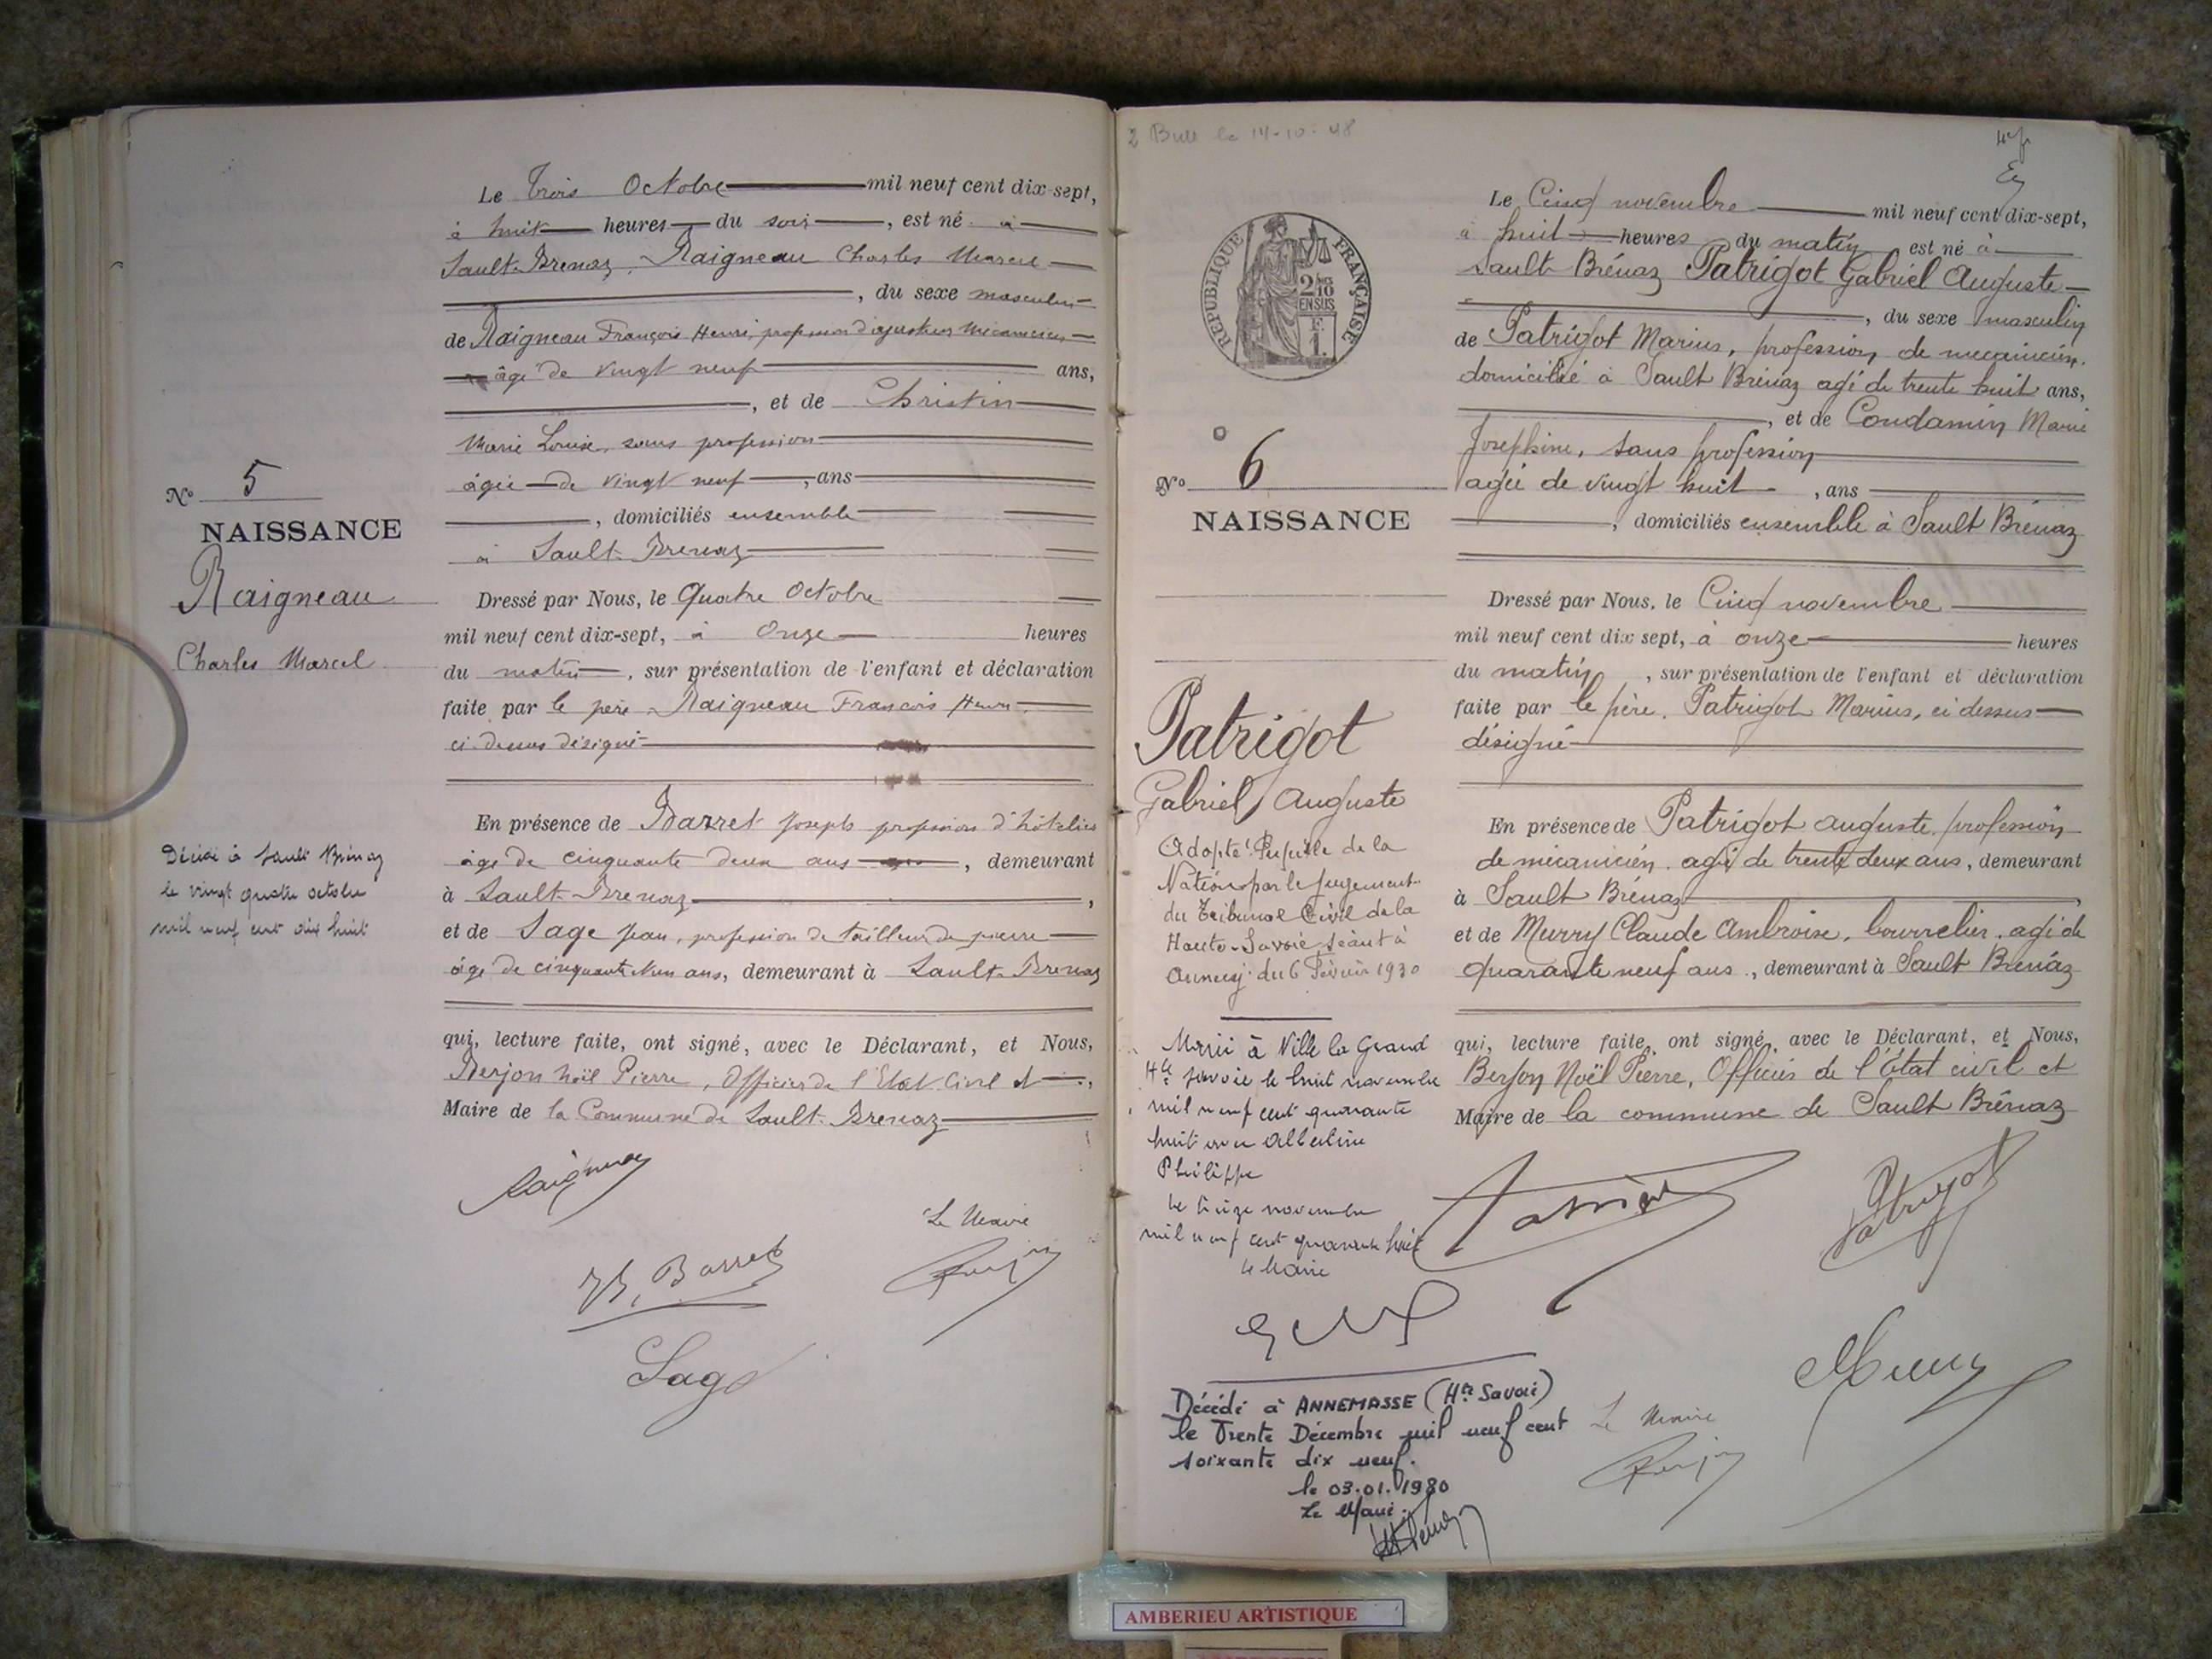 Le Trois Octobre mil neuf cent dix-sept,
à huit heures du soir, est né à
Sault-Brenaz, Raigneau Charles Marcel
, du sexe masculin
de Raigneau François Henri, profession d'ajusteur mécanicien
âgé de vingt neuf ans,
, et de Christin
Marie Louise, sans profession
âgée de vingt neuf, ans
, domiciliés ensemble
à Sault-Brenaz
No 5
NAISSANCE
Raigneau
Charles Marcel
Dressé par Nous, le Quatre Octobre
mil neuf cent dix-sept, à Onze heures
du matin, sur présentation de l'enfant et déclaration
faite par le père Raigneau François Henri
ci-dessus désigné
Décédé à Sault Brénaz
le vingt quatre octobre
mil neuf cent dix huit
En présence de Barret Joseph profession d'hôtelier
âgé de cinquante deux ans, demeurant
à Sault-Brenaz,
et de Sage Jean, profession de tailleur de pierre
âgé de cinquante ans, demeurant à Sault-Brenaz
qui, lecture faite, ont signé, avec le Déclarant, et Nous,
Berjon Noël Pierre, Officier de l'Etat Civil et,
Maire de la Commune de Sault-Brenaz
Raigneau
Le Maire
Jh, Barret
Sage
2 Bull le 14-10-48
REPUBLIQUE FRANÇAISE
EN SUS
Le Cinq novembre mil neuf cent dix-sept,
à huit heures du matin est né à
Sault Brénaz Patrigot Gabriel Auguste
, du sexe masculin
de Patrigot Marius, profession de mécanicien.
domicilié à Sault Brénaz agé de trente huit ans,
, et de Condamin Marie
Joséphine, sans profession
agée de vingt huit, ans
, domiciliés ensemble à Sault Brénaz
No 6
NAISSANCE
Patrigot
Gabriel Auguste
Dressé par Nous, le Cinq novembre
mil neuf cent dix sept, à onze heures
du matin, sur présentation de l'enfant et déclaration
faite par le père. Patrigot Marius, ci dessus
désigné
Adopté Pupille de la
Nation par le jugement
du Tribunal Civil de la
Haute-Savoie séant à
Annecy du 6 Février 1930
En présence de Patrigot auguste, profession
de mécanicien. agé de trente deux ans, demeurant
à Sault Brénaz
et de Murry Claude Ambroise, bourrelier. agé de
quarante neuf ans., demeurant à Sault Brénaz
qui, lecture faite, ont signé, avec le Déclarant, et Nous,
Berjon Noël Pierre, Officier de l'État civil et
Maire de la commune de Sault Brénaz
Marié à Ville la Grand
Hte Savoie le huit novembre
mil neuf cent quarante
huit avec Albertine
Philippe
le treize novembre
mil neuf cent quarante huit
Le Maire
Patrigot
Le Maire
Décédé à ANNEMASSE (Hte Savoie)
le Trente Décembre mil neuf cent
soixante dix neuf.
le 03.01.1980
Le Maire.
AMBERIEU ARTISTIQUE